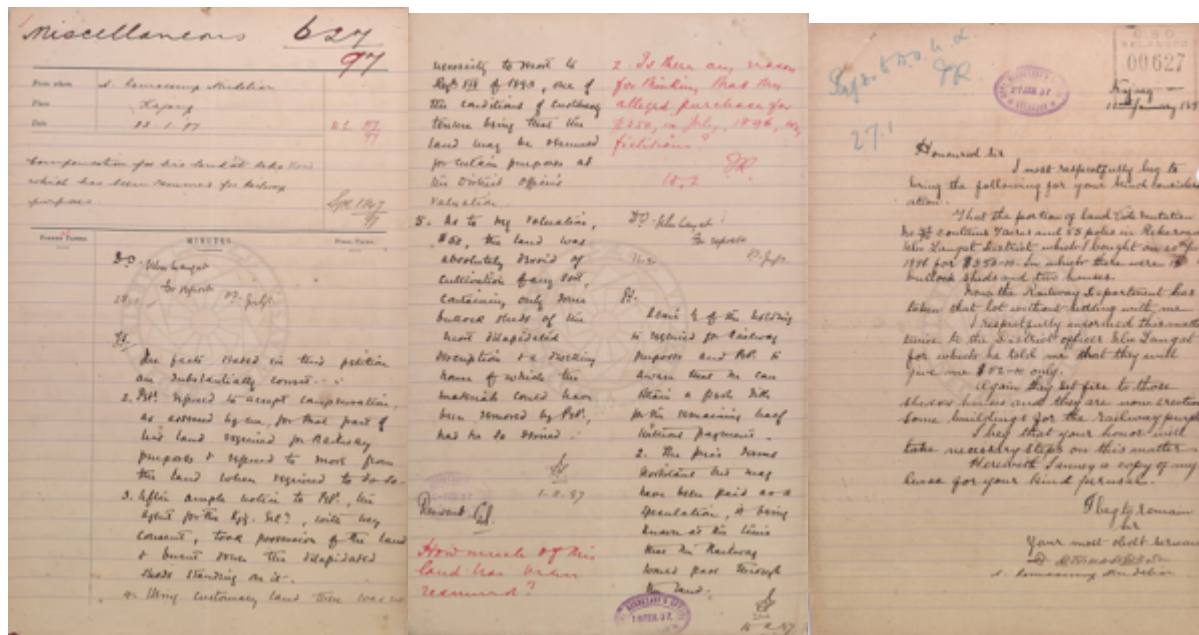 Miscellaneous 627
97
From whom S. Ramasamy Mudeliar
Place Kajang
Date 22.1.97
Compensation for his land at
which has been resumed for Railway
purposes.
MINUTES.
D.O. Ulu Langat
For report
The facts stated in this petition
are substantially correct.
2. Petr. refused to accept compensation,
as assessed by me, for that part of
his land required for Railway
purposes & refused to move from
the land when required to do so.
3. After ample notice to Petr., the
Agent for the, with my
consent, took possession of the land
& burnt down the dilapidated
sheds standing on it.
4. Being customary land there was no
necessity to resort to
one of
the conditions of customary
tenure being that the
land may be resumed
for certain purposes at
the District Officer's
valuation.
5. As to my valuation,
$52, the land was
absolutely devoid of
cultivation of any sort,
containing only some
bullock sheds of the
most dilapidated
description & a dwelling
house of which the
materials could have
been removed by Petr.,
had he so desired.
1.2.97
Resident Sel.
How much of this
land has been
resumed?
2. Is there any reason
for thinking that the
alleged purchase for
$350, in July, 1896, was
fictitious?
D.O. Ulu Langat
For report
About ½ of the holding
is required for Railway
purposes and Petr. is
aware that he can
obtain a fresh title
for the remaining half
without payment.
2. The price seems
exorbitant but may
have been paid as a
speculation, it being
known at the time
that the Railway
would pass through
the land.
GSO
SELANGOR
00627
27 JAN 97
Kajang
January 189
27.1
Honoured Sir
I most respectfully beg to
bring the following for your kind consider
ation.
That the portion of land
contains and 35 poles in
Ulu Langat District which I bought on
1896 for $350-00. In which there were
bullock sheds and two houses.
Now the Railway Department has
taken that lot without telling with me.
I respectfully informed this matter
twice to the District officer Ulu Langat
for which he told me that they will
give me $52-00 only.
Again they set fire to those
sheds & houses and they are now erecting
some buildings for the railway purpo
I beg that your honor will
take necessary steps on this matter.
Herewith I annex a copy of my
lease for your kind perusal.
I beg to remain
Sir
Your most obdt servant
S. Ramasamy Mudeliar